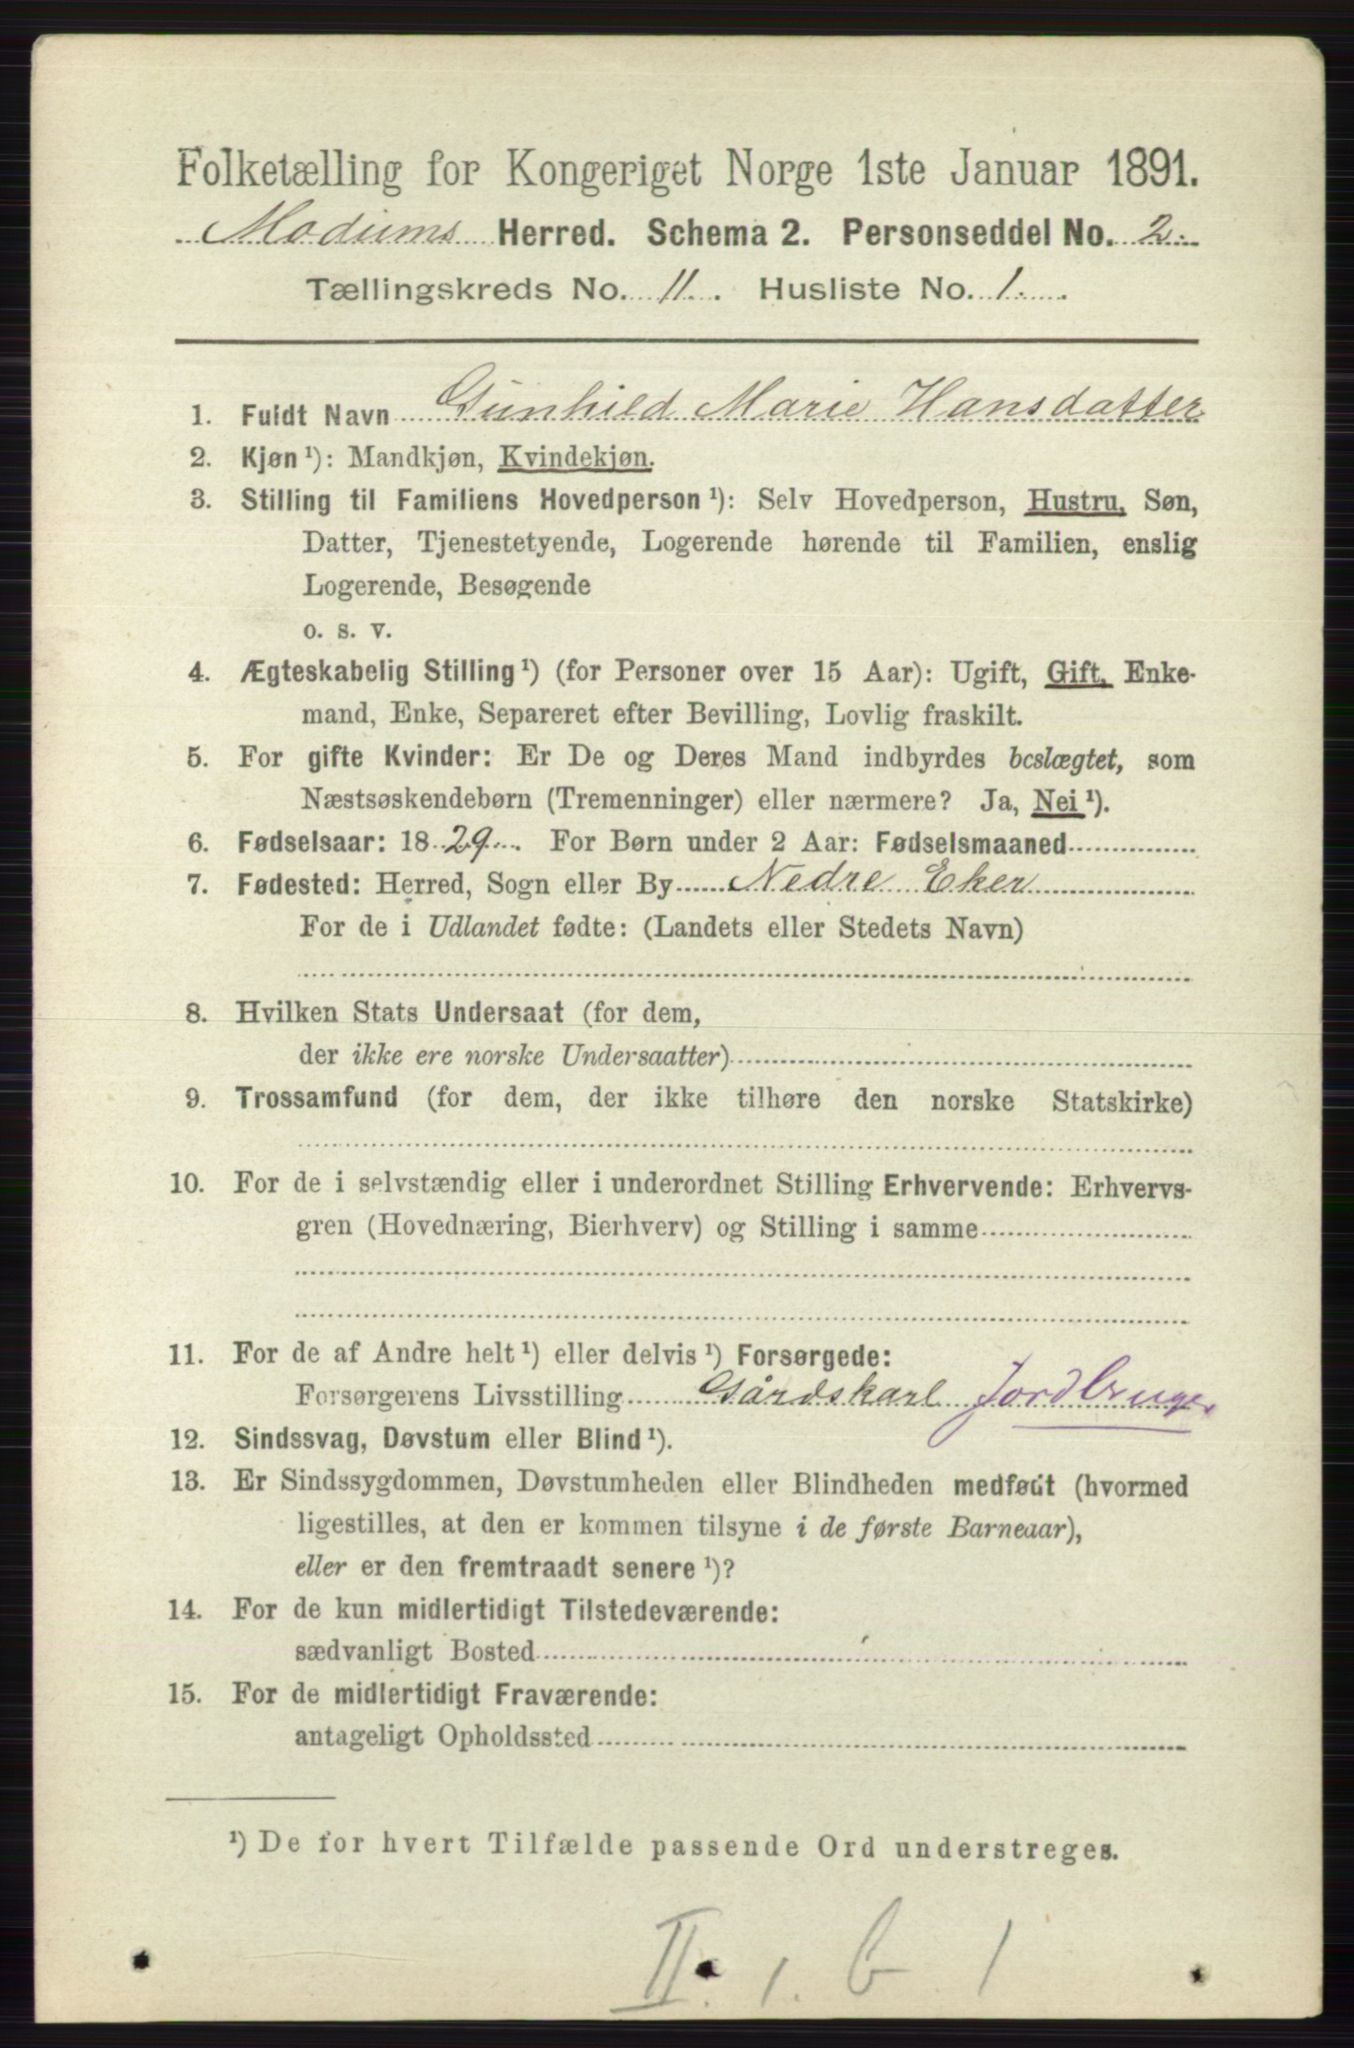 Folketælling for Kongeriget Norge 1ste Januar 1891.
Modums Herred. Schema 2. Personseddel No. 2.
Tællingskreds No. 11. Husliste No. 1.
1. Fuldt Navn Gunhild Marie Hansdatter
2. Kjøn ¹): Mandkjøn, Kvindekjøn.
3. Stilling til Familiens Hovedperson ¹): Selv Hovedperson, Hustru, Søn,
Datter, Tjenestetyende, Logerende hørende til Familien, enslig
Logerende, Besøgende
o. s. v.
4. Ægteskabelig Stilling ¹) (for Personer over 15 Aar): Ugift, Gift, Enke-
mand, Enke, Separeret efter Bevilling, Lovlig fraskilt.
5. For gifte Kvinder: Er De og Deres Mand indbyrdes beslægtet, som
Næstsøskendebørn (Tremenninger) eller nærmere? Ja, Nei ¹).
6. Fødselsaar: 1829. For Børn under 2 Aar: Fødselsmaaned
7. Fødested: Herred, Sogn eller By Nedre Eker
For de i Udlandet fødte: (Landets eller Stedets Navn)
8. Hvilken Stats Undersaat (for dem,
der ikke ere norske Undersaatter)
9. Trossamfund (for dem, der ikke tilhøre den norske Statskirke)
10. For de i selvstændig eller i underordnet Stilling Erhvervende: Erhvervs-
gren (Hovednæring, Bierhverv) og Stilling i samme
11. For de af Andre helt ¹) eller delvis ¹) Forsørgede:
Forsørgerens Livsstilling Gårdskarl Jordbruger
12. Sindssvag, Døvstum eller Blind ¹).
13. Er Sindssygdommen, Døvstumheden eller Blindheden medfødt (hvormed
ligestilles, at den er kommen tilsyne i de første Barneaar),
eller er den fremtraadt senere ¹)?
14. For de kun midlertidigt Tilstedeværende:
sædvanligt Bosted
15. For de midlertidigt Fraværende:
antageligt Opholdssted
¹) De for hvert Tilfælde passende Ord understreges.
II. 1. b 1